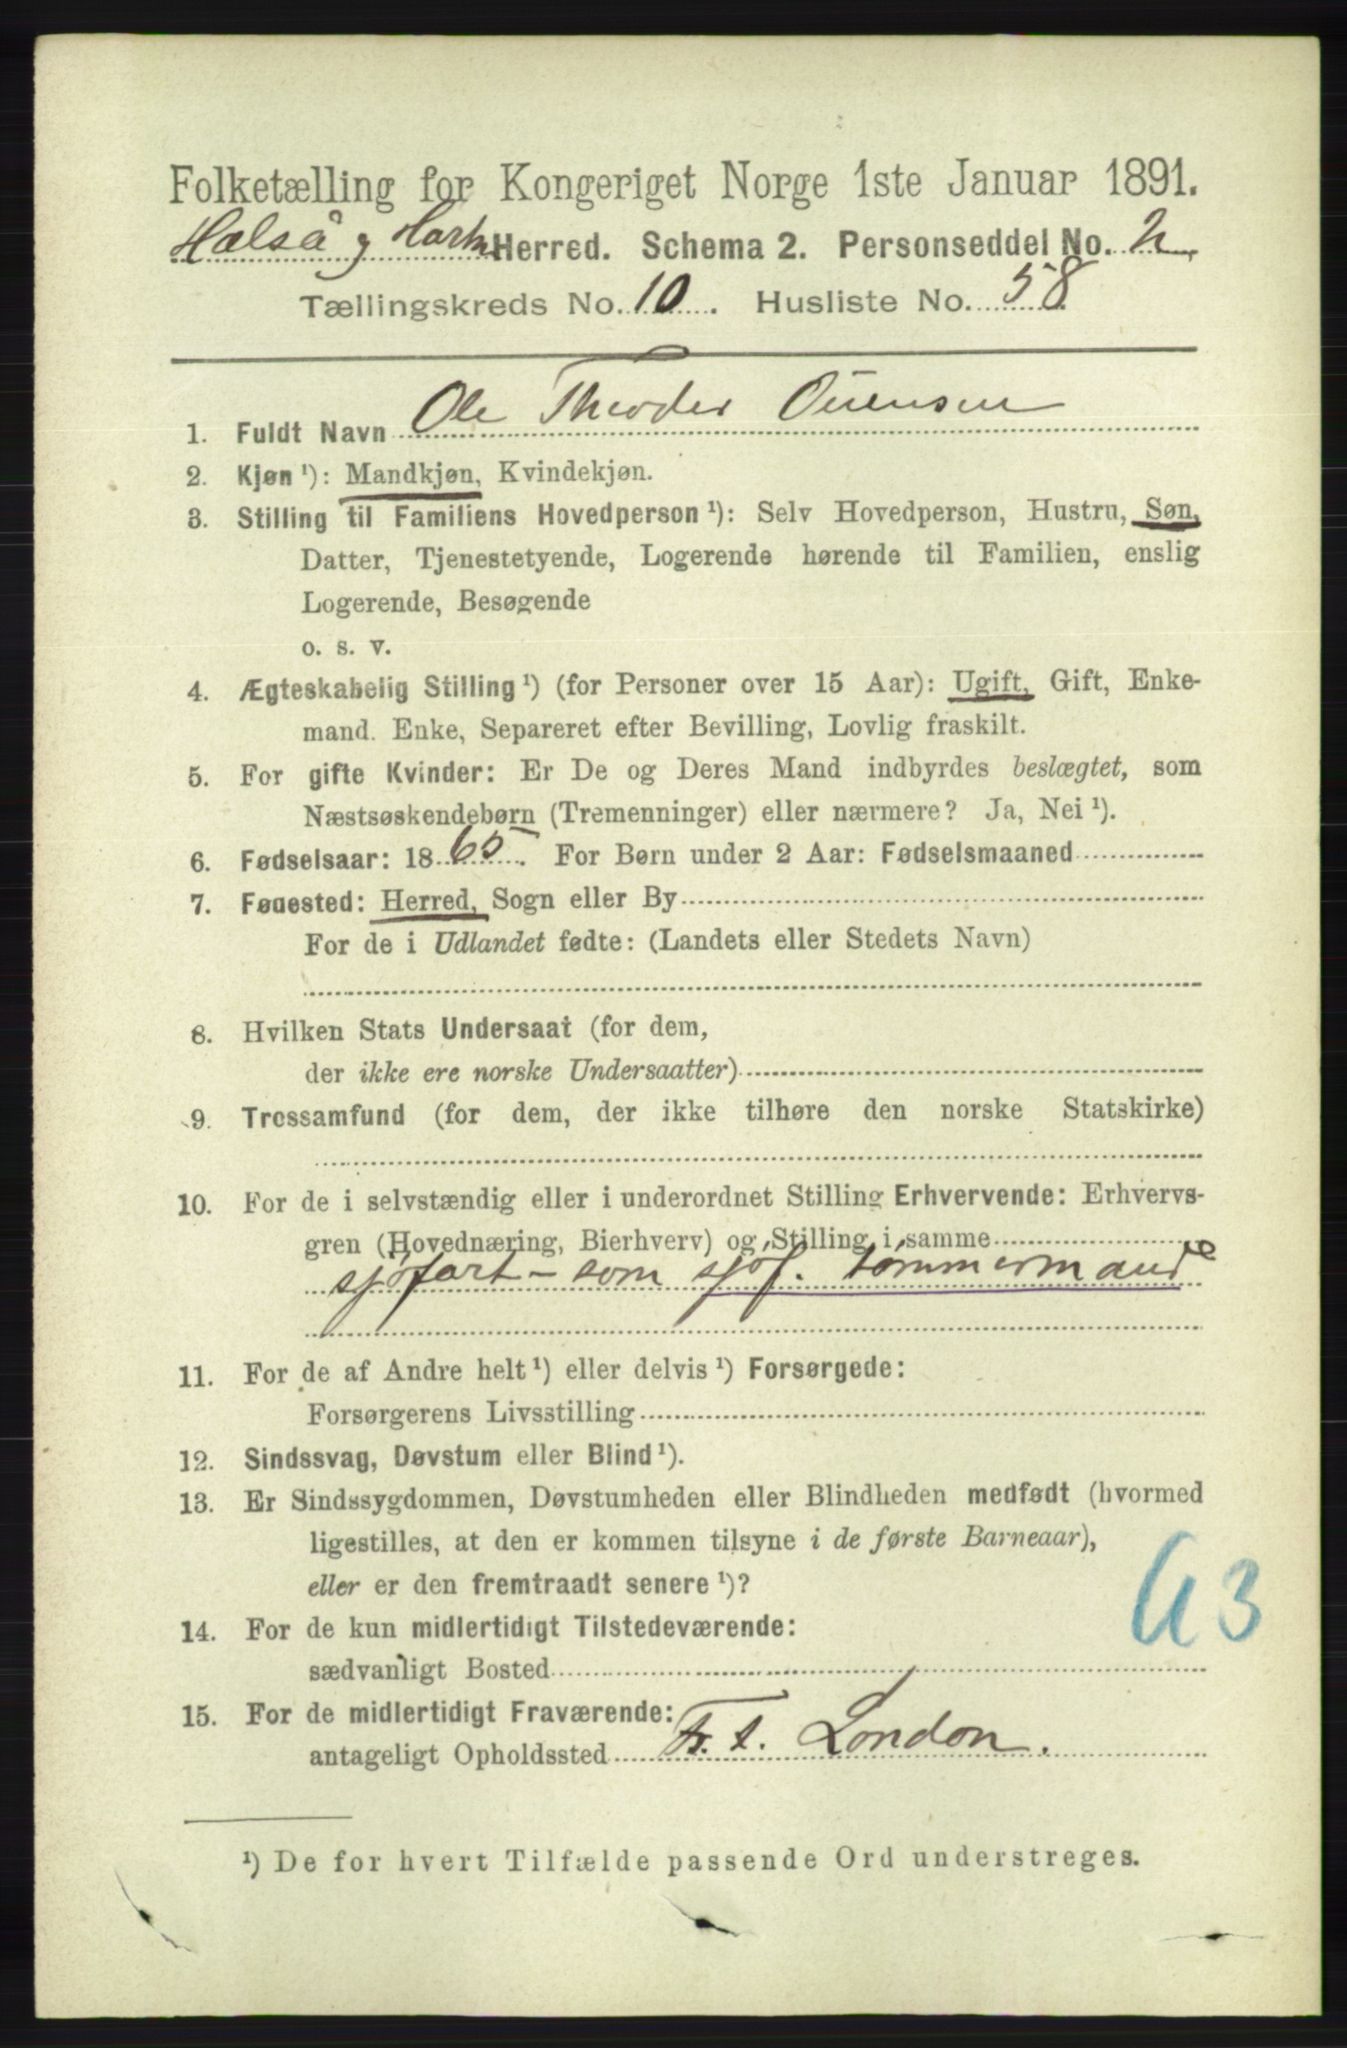 Folketælling for Kongeriget Norge 1ste Januar 1891.
Halså og Hark. Herred. Schema 2. Personseddel No. 2
Tællingskreds No. 10. Husliste No. 58
1. Fuldt Navn Ole Theoder
2. Kjøn ¹): Mandkjøn, Kvindekjøn.
3. Stilling til Familiens Hovedperson ¹): Selv Hovedperson, Hustru, Søn,
Datter, Tjenestetyende, Logerende hørende til Familien, enslig
Logerende, Besøgende
o. s. v.
4. Ægteskabelig Stilling ¹) (for Personer over 15 Aar): Ugift, Gift, Enke-
mand. Enke, Separeret efter Bevilling, Lovlig fraskilt.
5. For gifte Kvinder: Er De og Deres Mand indbyrdes beslægtet, som
Næstsøskendebørn (Tremenninger) eller nærmere? Ja, Nei ¹).
6. Fødselsaar: 1865. For Børn under 2 Aar: Fødselsmaaned
7. Fødested: Herred, Sogn eller By
For de i Udlandet fødte: (Landets eller Stedets Navn)
8. Hvilken Stats Undersaat (for dem,
der ikke ere norske Undersaatter)
9. Trossamfund (for dem, der ikke tilhøre den norske Statskirke)
10. For de i selvstændig eller i underordnet Stilling Erhvervende: Erhvervs-
gren (Hovednæring, Bierhverv) og Stilling i samme
sjöfart - som sjöf. tömmermand
11. For de af Andre helt ¹) eller delvis ¹) Forsørgede:
Forsørgerens Livsstilling
12. Sindssvag, Døvstum eller Blind ¹).
13. Er Sindssygdommen, Døvstumheden eller Blindheden medfødt (hvormed
ligestilles, at den er kommen tilsyne i de første Barneaar),
eller er den fremtraadt senere ¹)?
63
14. For de kun midlertidigt Tilstedeværende:
sædvanligt Bosted
15. For de midlertidigt Fraværende:
antageligt Opholdssted Fr. t. London.
¹) De for hvert Tilfælde passende Ord understreges.